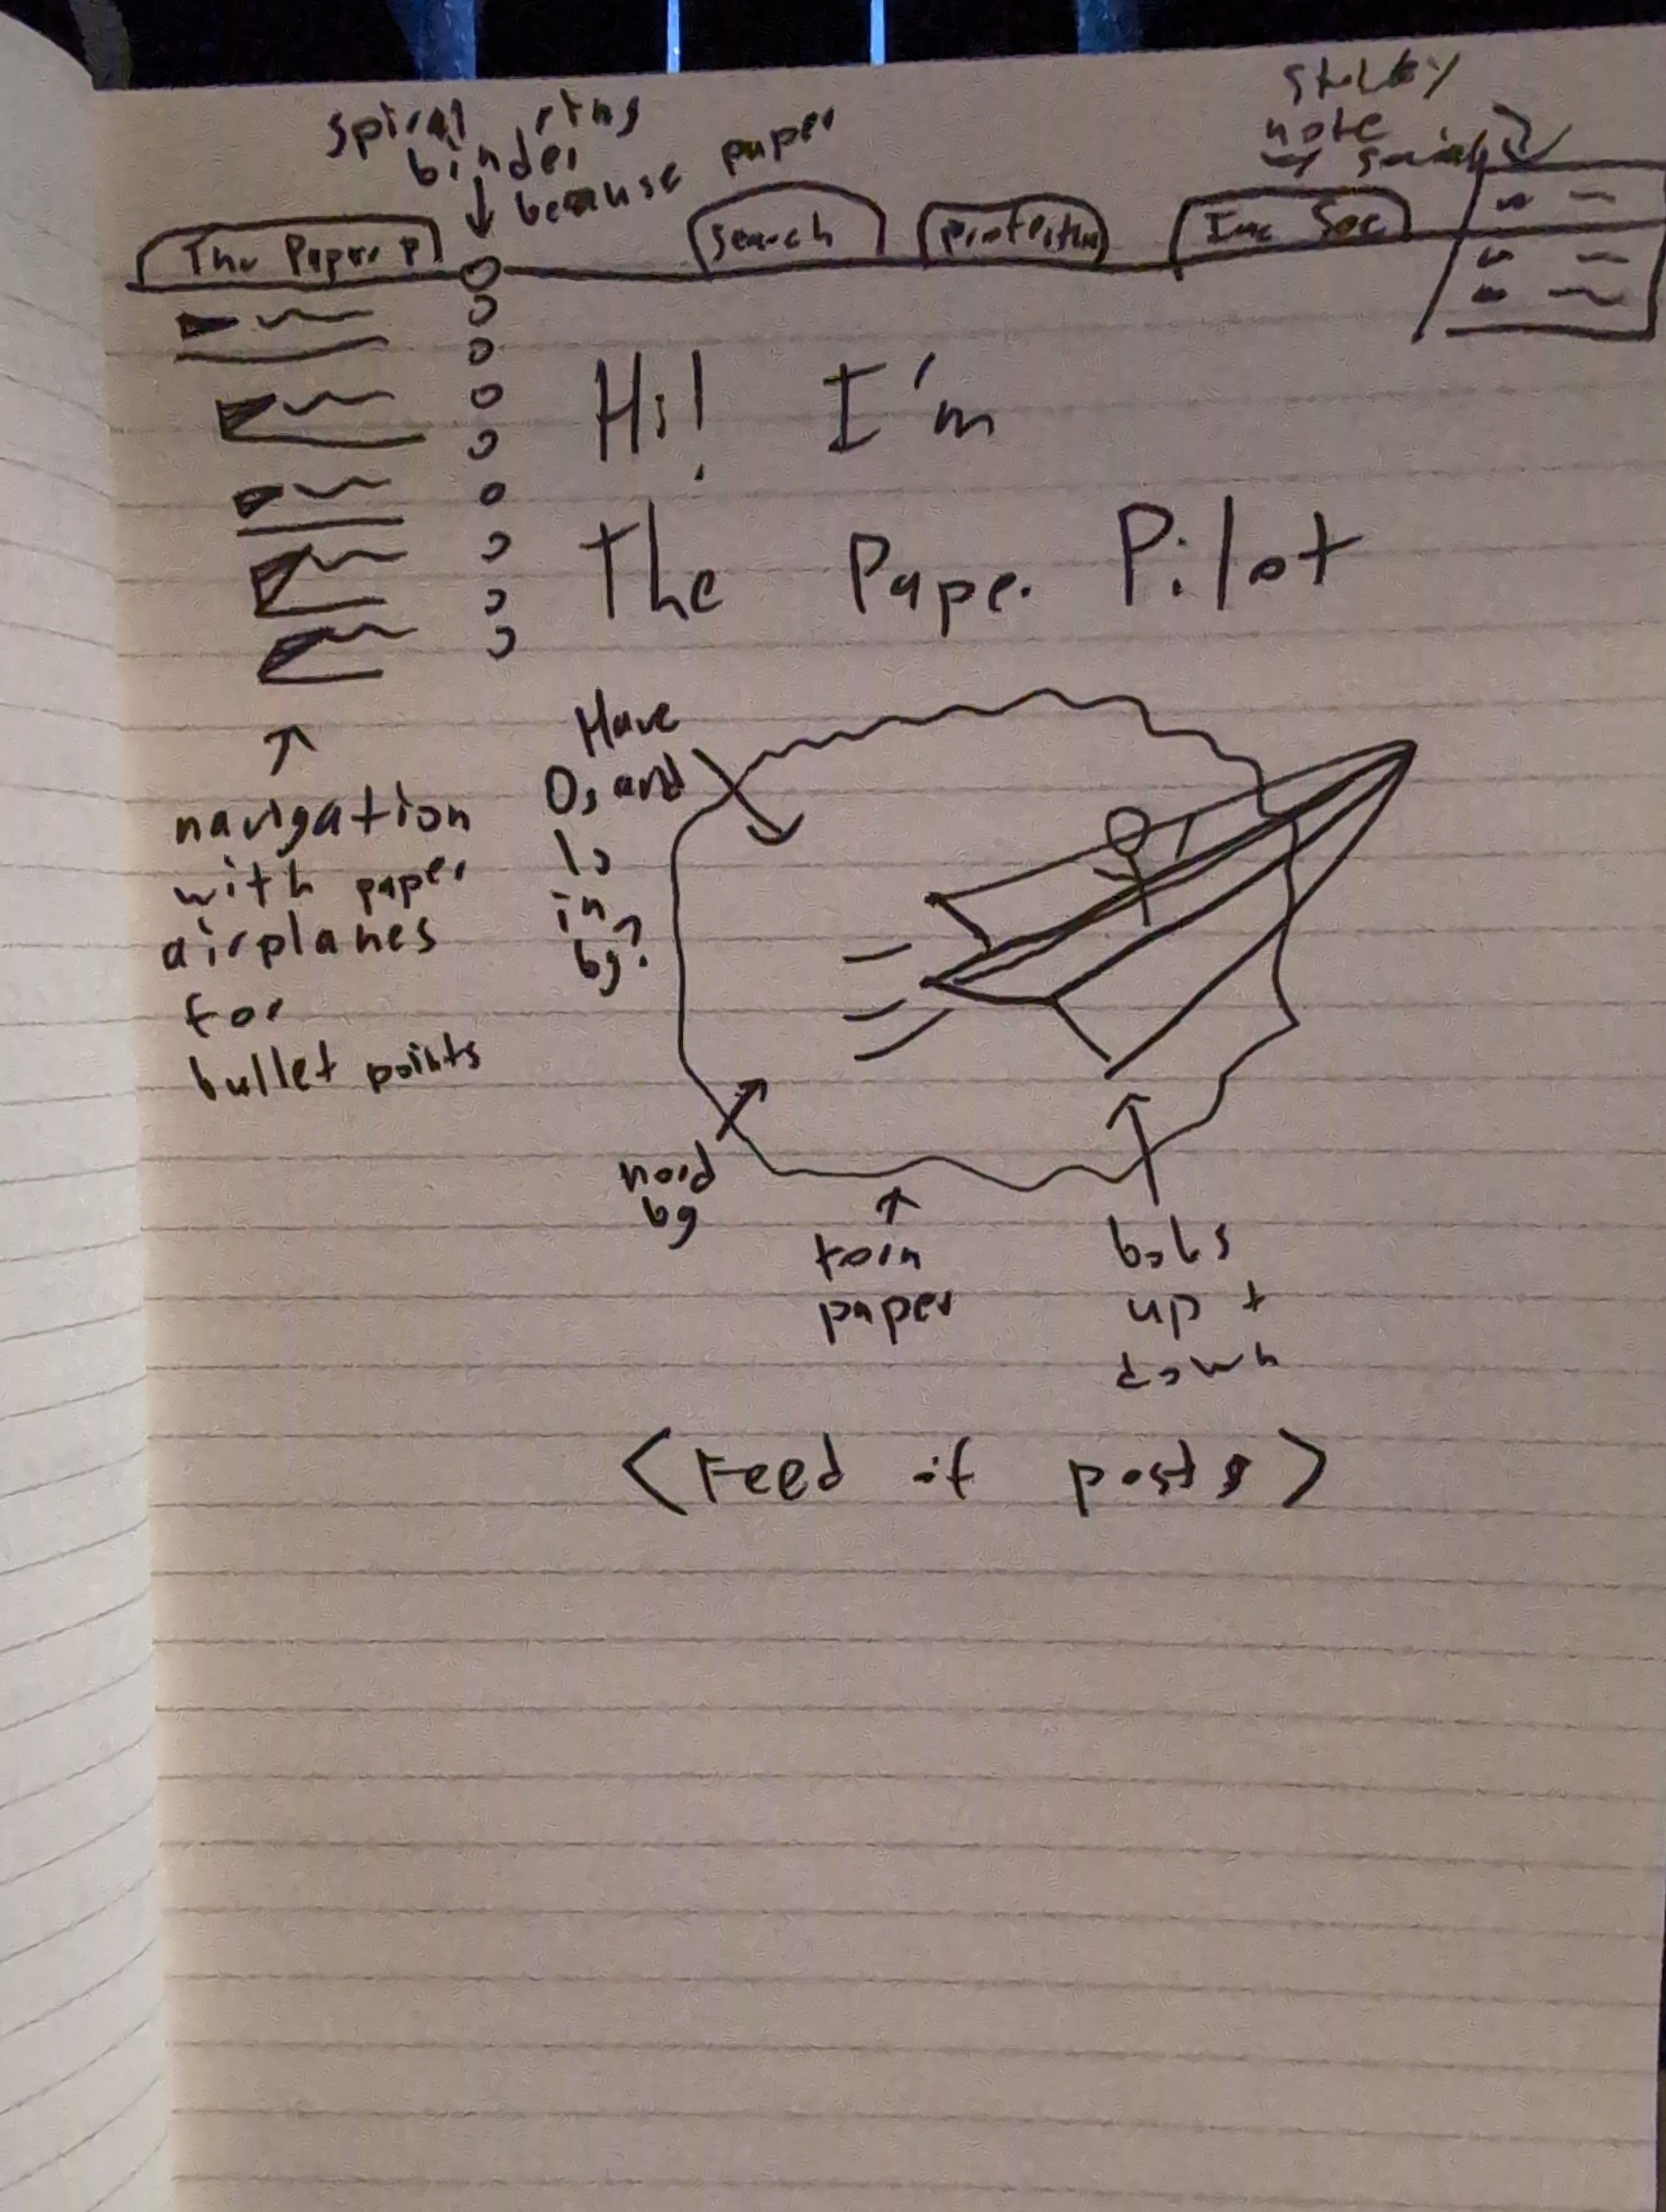 spiral ring
binder
because paper
sticky
note
The Paper P
Search
Inc Soc
Hi! I'm
The Paper Pilot
navigation
with paper
airplanes
for
bullet points
Have
0s and
1s
in
bg?
nord
bg
torn
paper
bobs
up +
down
<Feed of posts>